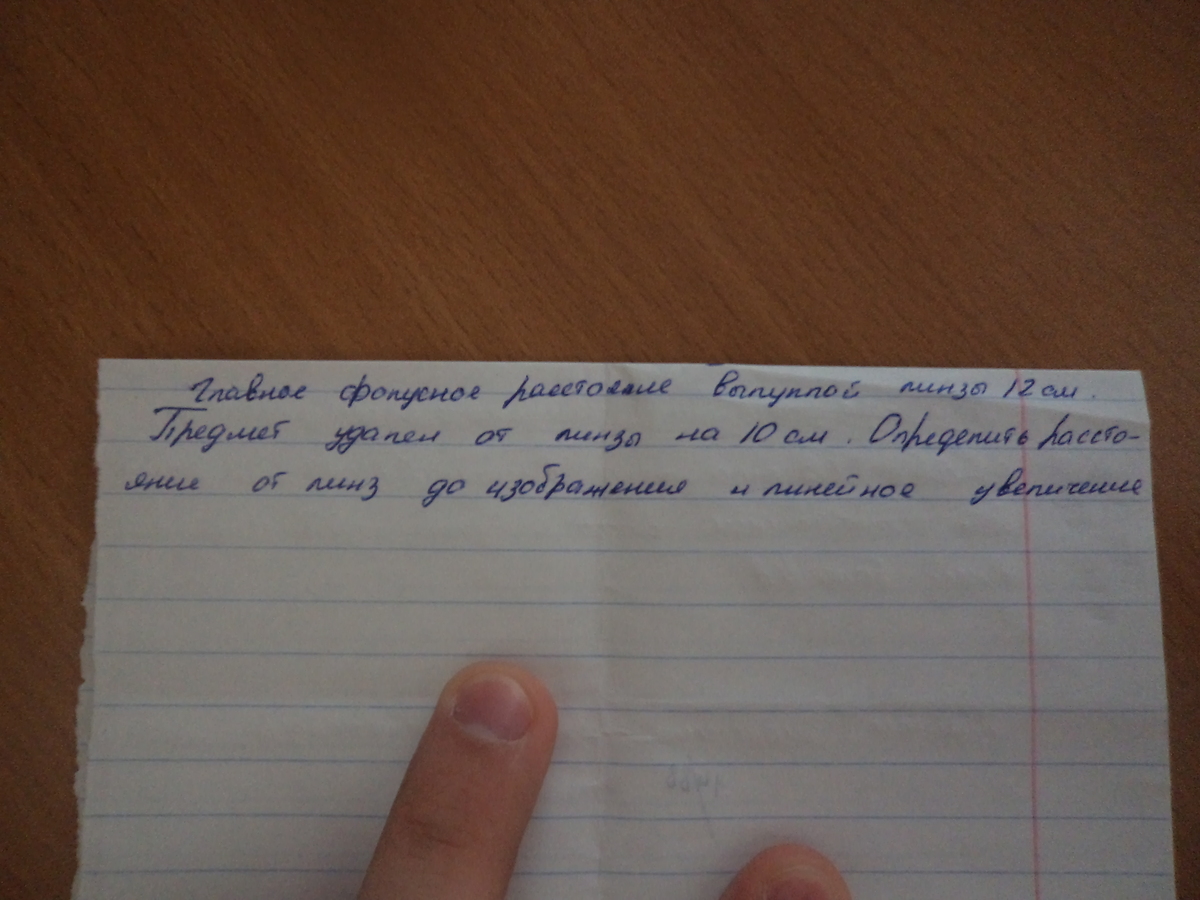 Главное фокусное расстояние выпуклой линзы 12 см.
Предмет удален от линзы на 10 см. Определить рассто-
яние от линз до изображения и линейное увеличение